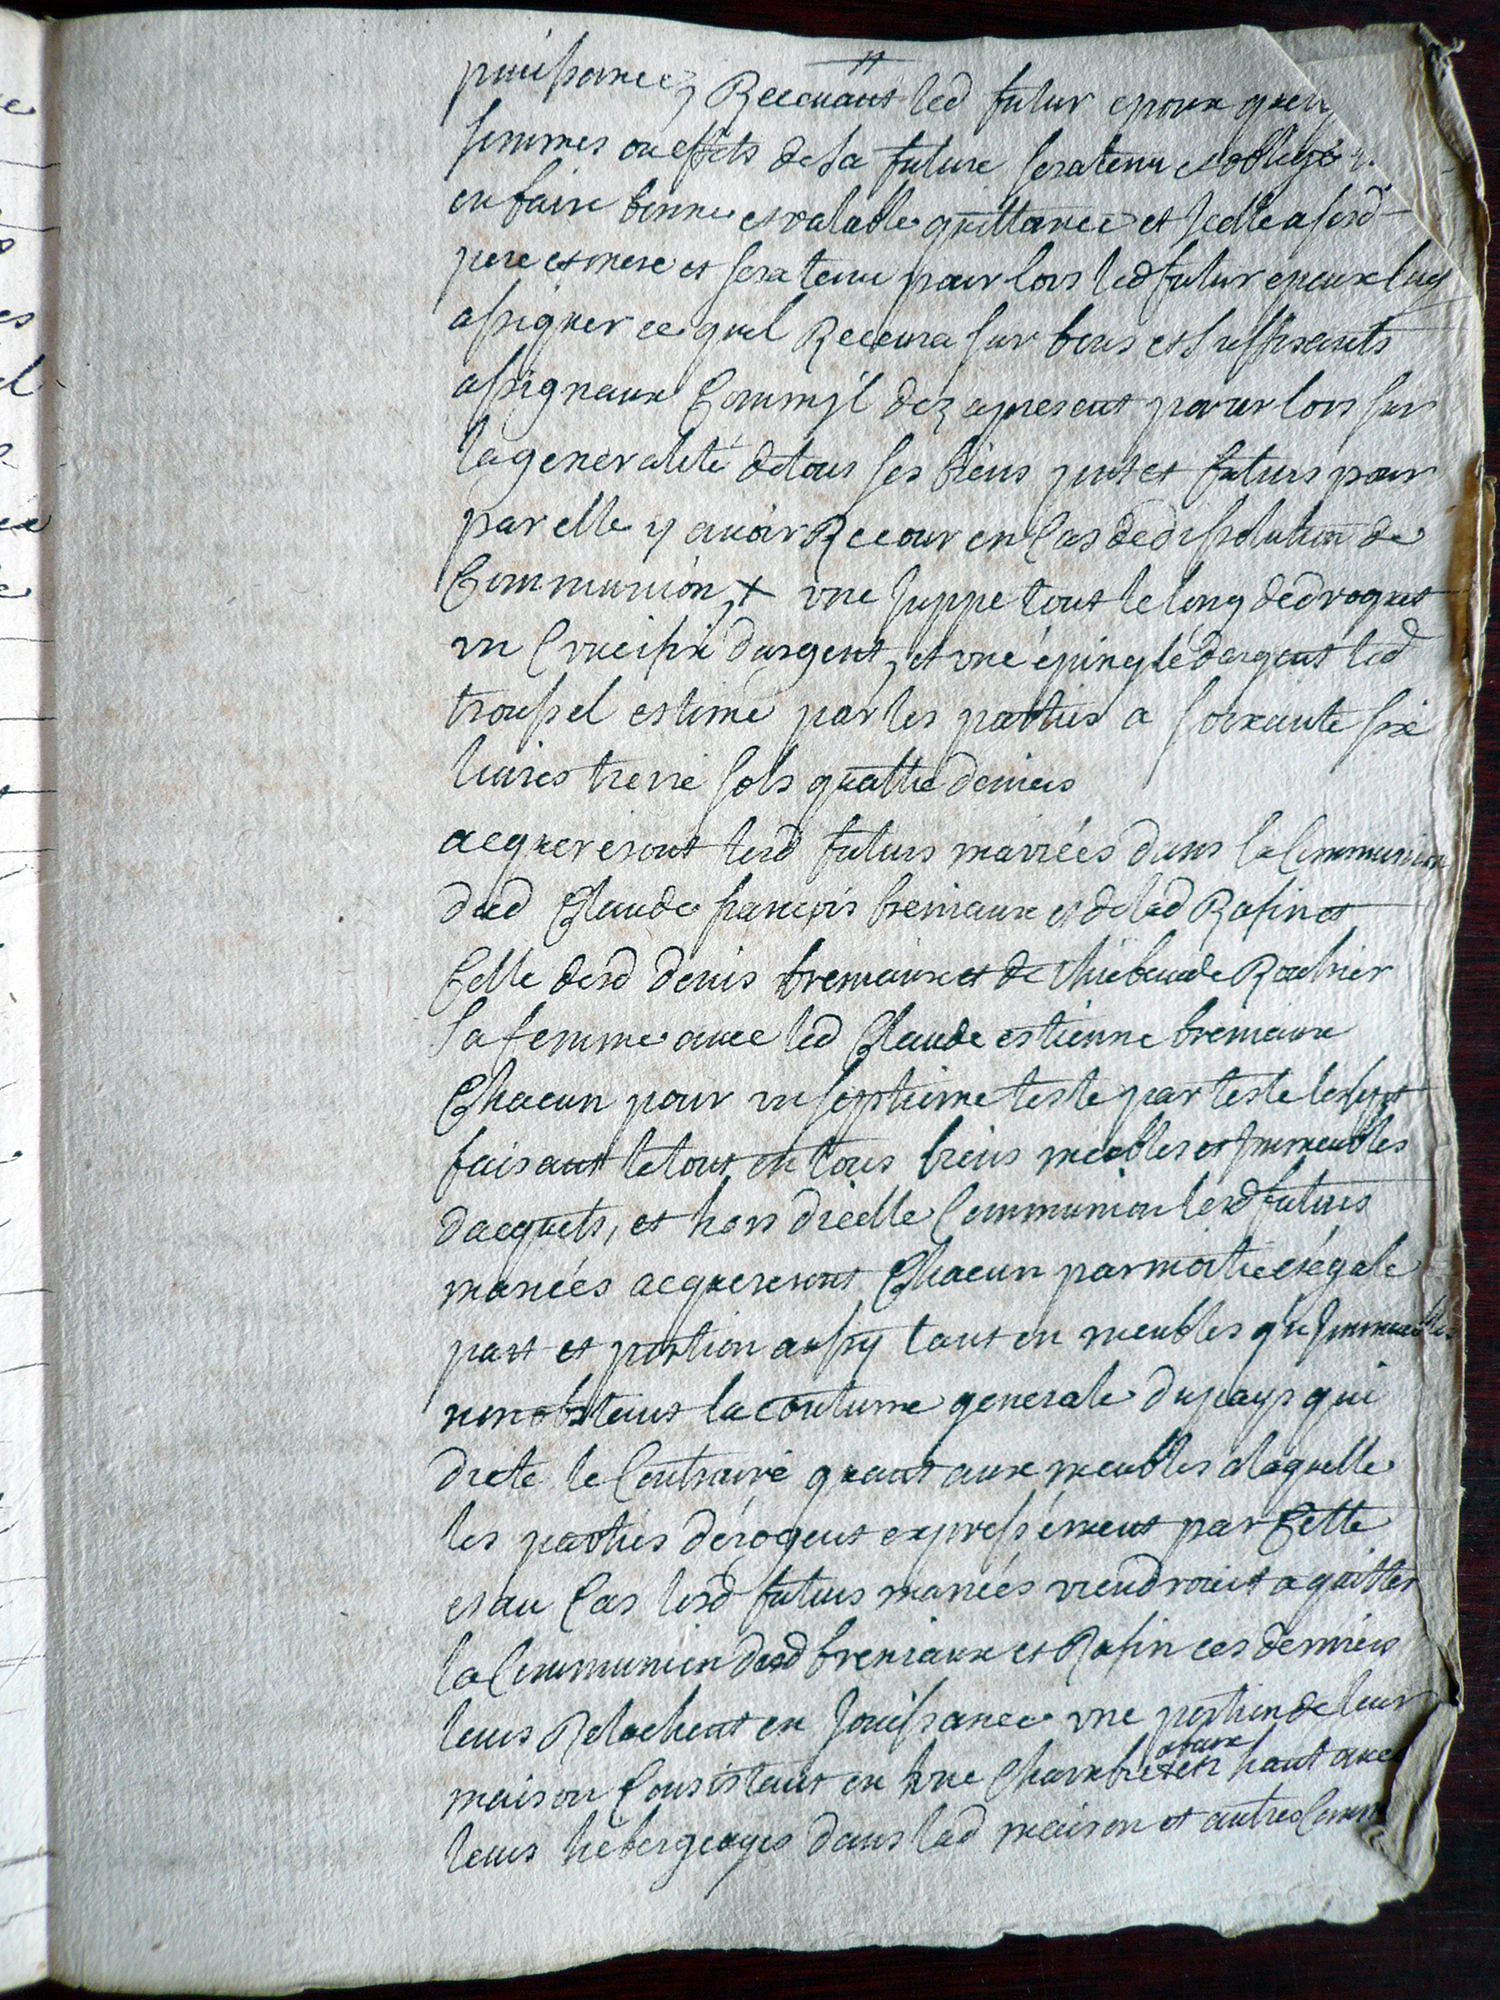 puissance, Recevant led futur epoux quelq
sommes ou effets de la future sera tenu et obligé
en faire bonne et valable quittance et Icelle a sesd
pere et mere et sera tenu pour lors led futur epoux luy
assigner ce quil Recevra sur bons et suffisants
assignaux Comm'jl dez apresent pour lors sur
la generalité de tous ses biens pnts et futurs pour
par elle y avoir Recour en Cas de dissolution de
Communion, + une juppe tout le long de droguet
un Crucifix d'argent, et une épingle d'argent led
troussel estimé par les parties a soixante six
livres treize sols quattre deniers
acquereront lesd futurs mariées dans la Communion
dud Claude françois bremiaux et de lad Rafin et
Celle desd denis bremiaux et de thiebaude Roulier
sa femme avec led Claude estienne bremiaux
Chacun pour un septieme teste par teste les sept
faisant le tout en tous biens meubles et Immeubles
dacquets, et hors dicelle Communion lesd futurs
mariées acquereront Chacun par moitié et égale
part et portion aussy tant en meubles qu'Immeubles
nonobstant la coutume generale du pays qui
dicte le Contraire quant aux meubles a laquelle
les parties dérogent expressément par Cette
et au Cas lesd futurs mariées viendroient a quitter
la Communion desd bremiaux et Rafin ces derniers
leurs Relachent en Jouissance une portion de leur
maison Consistant en une Chambre en haut avec
leurs hébergeages dans lad maison et autres Comm